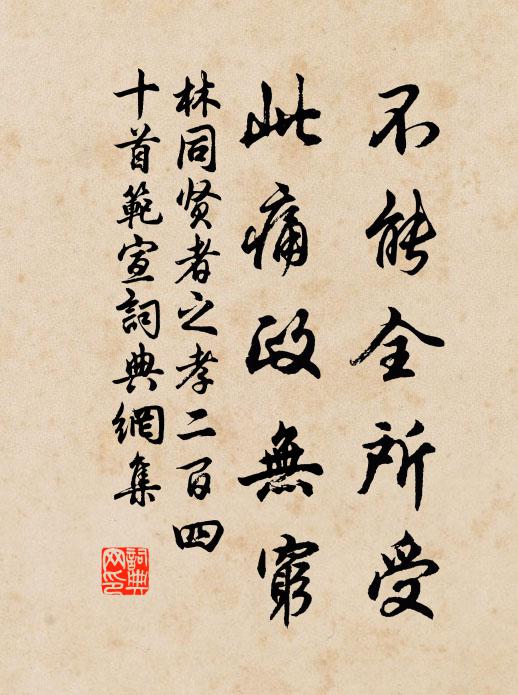 不能全所受
此痛政無窮
林同贤者之孝二百四
十首範宣詞典網集
詞典网印